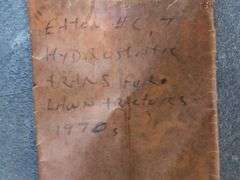 Eaton HC, 7
Hydrostatic
trans for
lawn tractors
1970s